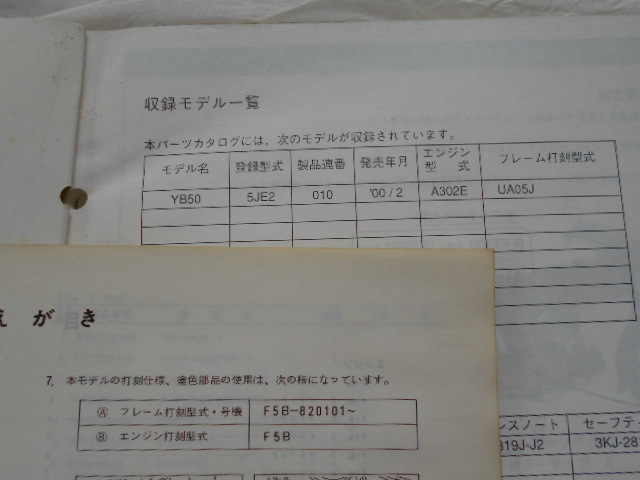 収録モデル一覧
本パーツカタログには、次のモデルが収録されています。
モデル名 登録型式 製品連番 発売年月 エンジン型式 フレーム打刻型式
YB50 5JE2 010 '00/2 A302E UA05J
えがき
7. 本モデルの打刻仕様、塗色部品の使用は、次の様になっています。
Ⓐ フレーム打刻型式・号機 F5B-820101~
Ⓑ エンジン打刻型式 F5B
ンスノート セーフテ
319J-J2 3KJ-281